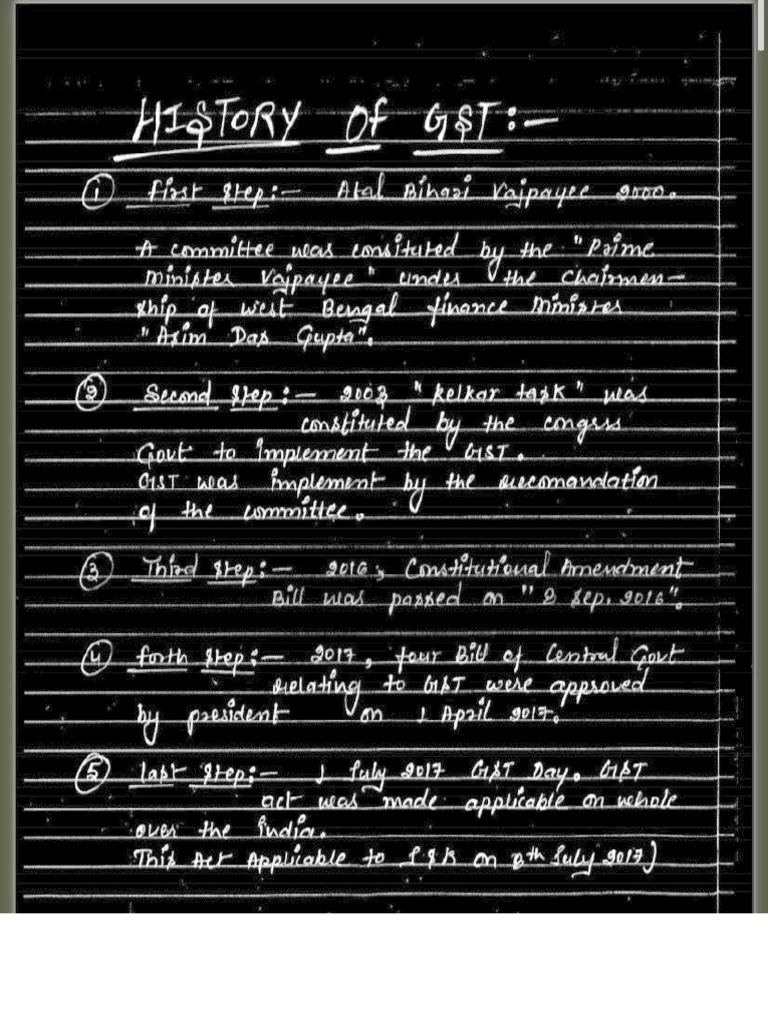 HISTORY Of GST:-
① first Step:- Atal Bihari Vajpayee 2000.
A committee was consituted by the "Prime
Minister Vajpayee" under the Chairmen-
ship of West Bengal finance Minister
"Asim Das Gupta".
② Second Step:- 2003 "Kelkar task" was
constituted by the congrss
Govt to Implement the GST.
GST was implement by the reecomandation
of the committee.
③ Third Step:- 2016, Constitutional Amendment
Bill was passed on "8 Sep. 2016".
④ forth Step:- 2017, four Bill of Central Govt
relating to GST were approved
by president on 1 April 2017.
⑤ last Step:- 1 July 2017 GST Day. GST
act was made applicable on whole
over the india.
This Act Applicable to J&K on 8th July 2017)